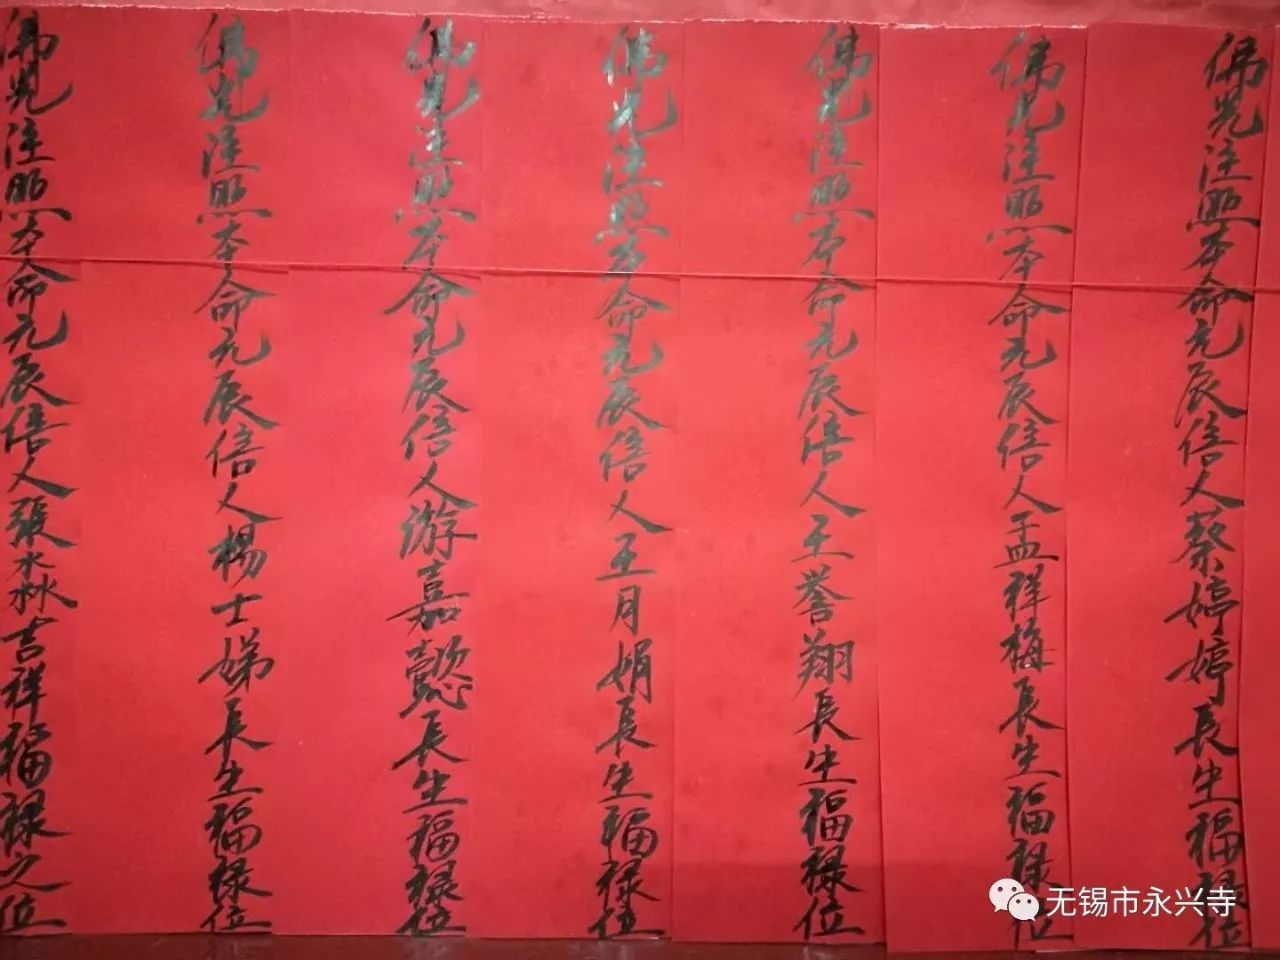 佛光注照本命元辰信人蔡婷婷長生福祿位
佛光注照本命元辰信人孟祥梅長生福祿位
佛光注照本命元辰信人王誉翔長生福祿位
佛光注照本命元辰信人王月娟長生福祿位
佛光注照本命元辰信人游嘉懿長生福祿位
佛光注照本命元辰信人楊士娣長生福祿位
佛光注照本命元辰信人張淼淼吉祥福祿之位
无锡市永兴寺